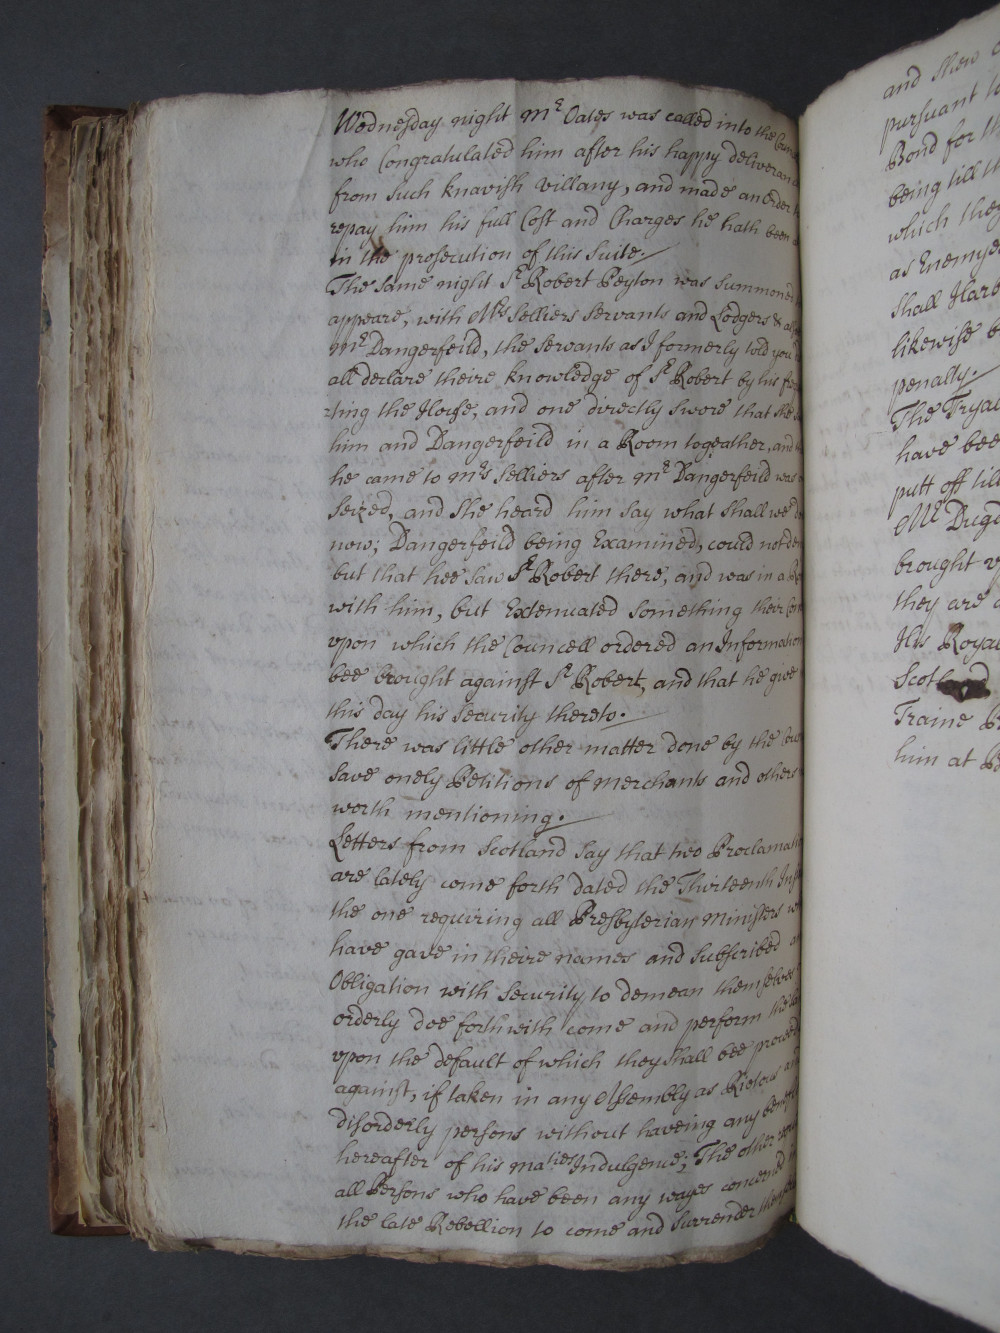 Wednesday night Mr Oates was called into the
who Congratulated him after his happy
from such knavish villany, and made an Order
repay him his full Cost and Charges he hath been
in the prosecution of this Suite.
The same night Sr Robert Peyton was summoned
appeare, with Mrs Selliers servants and Lodgers &
Mr Dangerfeild, the servants as I formerly told you
all declare theire knowledge of Sr Robert by his
ting the House, and one directly swore that she
him and Dangerfeild in a Room togeather, and
he came to Mrs Selliers after Mr Dangerfeild was
Seized, and she heard him say what shall we
now; Dangerfeild being Examined, could not
but that hee saw Sr Robert there, and was in a
with him, but Extenuated something their
vpon which the Councell ordered an Information
bee brought against Sr Robert, and that he give
this day his Security thereto.
There was little other matter done by the
save onely Petitions of merchants and others
worth mentioning.
Letters from Scotland say that two
are lately come forth dated the Thirteenth
the one requiring all Presbyterian Ministers
have gave in theire names and subscribed
Obligation with Security to demean themselves
orderly doe forthwith come and perform the
vpon the default of which they shall bee
against, if taken in any Assembly as Riotous
disorderly persons without haveing any
hereafter of his maties Indulgence; The other
all Persons who have been any wayes concerned
the late Rebellion to come and surrender
and shew
pursuant
Bond for
being till
which they
as Enemyes
shall
likewise
penalty.
The
have been
putt off till
Mr
brought
they are
His
Traine
him at